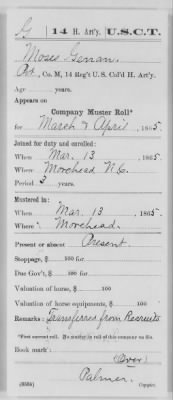 G | 14 H. Art'y. | U.S.C.T.
Moses
Pvt., Co. M, 14 Reg't U. S. Col'd H. Art'y.
Age years.
Appears on
Company Muster Roll*
for March & April, 1865.
Joined for duty and enrolled:
When Mar. 13, 1865.
Where Morehead N.C.
Period 3 years.
Mustered in:
When Mar. 13, 1865.
Where Morehead.
Present or absent Present.
Stoppage, $ 100 for
Due Gov't, $ 100 for
Valuation of horse, $ 100
Valuation of horse equipments, $ 100
Remarks: Transferred from Recruits
*First current roll. No muster-in roll of this company on file.
Book mark:
(Over)
Palmer.
(358b) Copyist.